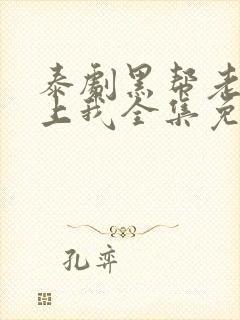 泰剧黑帮老
上我全集免
孔弈